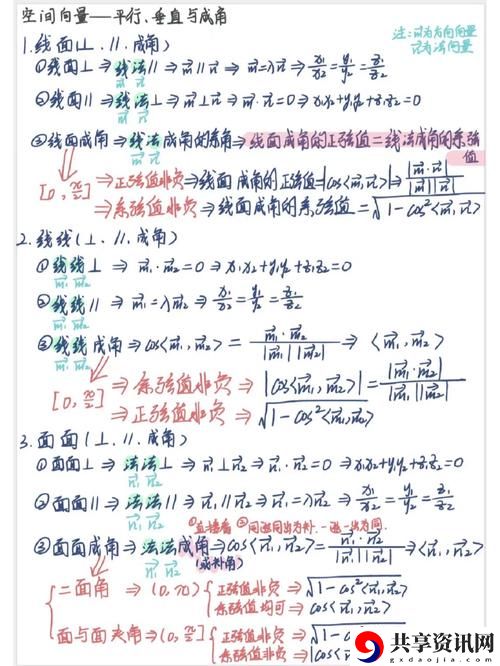 空间向量——平行、垂直与成角
注: m⃗为方向向量
n⃗为法向量
1.线面(⊥、∥、成角)
①线面⊥⇒线法∥⇒m⃗∥n⃗⇒m⃗=λn⃗⇒x₁/x₂=y₁/y₂=z₁/z₂
m⃗ n⃗
②线面∥⇒线法⊥⇒m⃗⊥n⃗⇒m⃗·n⃗=0⇒x₁x₂+y₁y₂+z₁z₂=0
m⃗ n⃗
③线面成角⇒线法成角的余角⇒线面成角的正弦值=线法成角的余弦值
m⃗ n⃗
[0,π/2]⇒正弦值非负⇒线面成角的正弦值=|cos<m⃗,n⃗>|⇒|m⃗·n⃗|/|m⃗||n⃗|
⇒余弦值非负⇒线面成角的余弦值=√1-cos²<m⃗,n⃗>
2.线线(⊥、∥、成角)
①线线⊥⇒m⃗₁·m⃗₂=0⇒x₁x₂+y₁y₂+z₁z₂=0
m⃗₁ m⃗₂
②线线∥⇒m⃗₁=λm⃗₂⇒x₁/x₂=y₁/y₂=z₁/z₂
m⃗₁ m⃗₂
③线线成角⇒cos<m⃗₁,m⃗₂>=m⃗₁·m⃗₂/|m⃗₁||m⃗₂|⇒<m⃗₁,m⃗₂>
m⃗₁ m⃗₂
[0,π/2]⇒余弦值非负⇒|cos<m⃗₁,m⃗₂>|=|m⃗₁·m⃗₂|/|m⃗₁||m⃗₂|
⇒正弦值非负⇒√1-cos²<m⃗₁,m⃗₂>
3.面面(⊥、∥、成角)
①面面⊥⇒法法⊥⇒n⃗₁⊥n⃗₂⇒n⃗₁·n⃗₂=0⇒x₁x₂+y₁y₂+z₁z₂=0
n⃗₁ n⃗₂
②面面∥⇒法法∥⇒n⃗₁∥n⃗₂⇒n⃗₁=λn⃗₂⇒x₁/x₂=y₁/y₂=z₁/z₂
n⃗₁ n⃗₂
①直接看 ②同进同出为补.一进一出为同.
③面面成角⇒法法成角⇒cos<n⃗₁,n⃗₂>=n⃗₁·n⃗₂/|n⃗₁||n⃗₂|⇒<n⃗₁,n⃗₂>
n⃗₁ n⃗₂ (或补角)
二面角⇒(0,π){正弦值非负⇒√1-cos²<n⃗₁,n⃗₂>
余弦值均可⇒cos<n⃗₁,n⃗₂>
面与面夹角⇒(0,π/2]{正弦值非负⇒√1-c
余弦值非负⇒|c
共享资讯网
gxdaojia.com